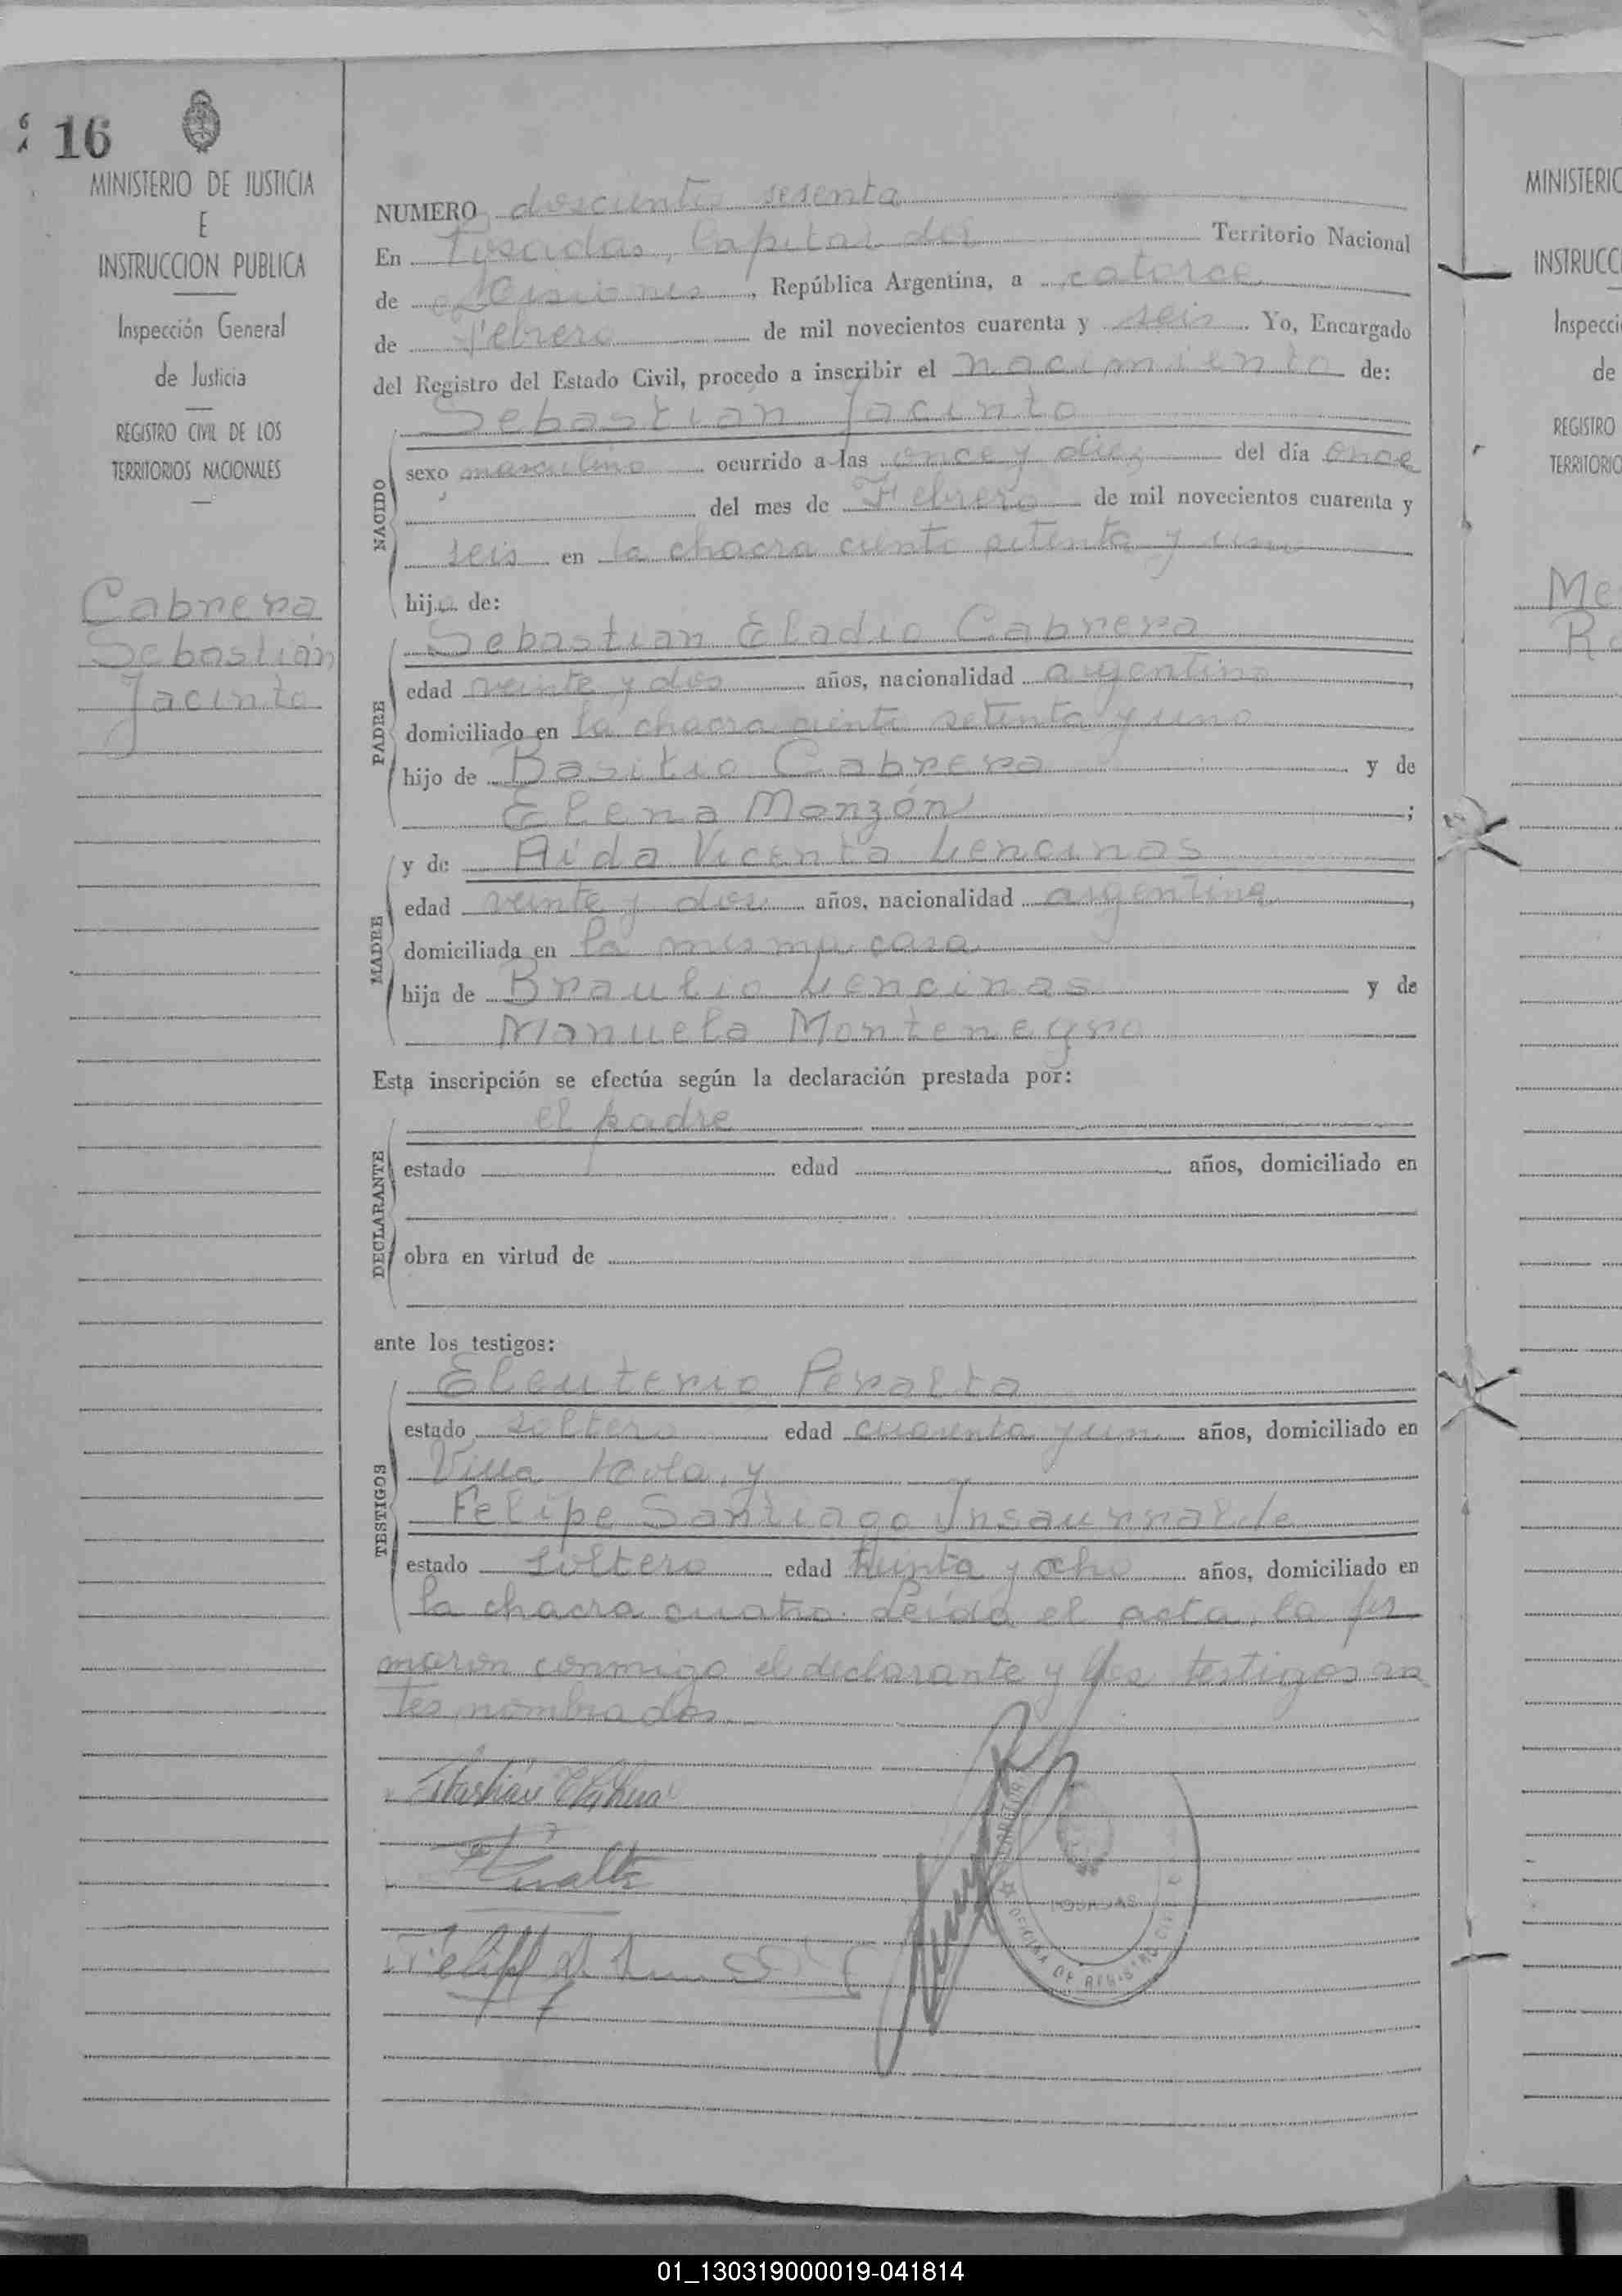 16
MINISTERIO DE JUSTICIA
E
INSTRUCCION PUBLICA
Inspección General
de Justicia
REGISTRO CIVIL DE LOS
TERRITORIOS NACIONALES
Cabrera
Sebastián
Jacinto
NUMERO doscientos sesenta
En Posadas, Capital del Territorio Nacional
de Misiones, República Argentina, a catorce
de Febrero de mil novecientos cuarenta y seis. Yo, Encargado
del Registro del Estado Civil, procedo a inscribir el nacimiento de:
Sebastián Jacinto
NACIDO
sexo masculino ocurrido a las once y diez del día once
del mes de Febrero de mil novecientos cuarenta y
seis en la chacra ciento setenta y uno
hijo de:
PADRE
Sebastian Eladio Cabrera
edad veinte y dos años, nacionalidad argentino,
domiciliado en la chacra ciento setenta y uno
hijo de Basilio Cabrera y de
Elena Monzón;
MADRE
y de Aída Vicenta Lencinas
edad veinte y dos años, nacionalidad argentina,
domiciliada en la misma casa
hija de Braulio Lencinas y de
Manuela Montenegro
Esta inscripción se efectúa según la declaración prestada por:
DECLARANTE
el padre
estado edad años, domiciliado en
obra en virtud de
ante los testigos:
TESTIGOS
Eleuterio Peralta
estado soltero edad cuarenta y un años, domiciliado en
Villa y
Felipe Santiago Insaurralde
estado soltero edad treinta y ocho años, domiciliado en
la chacra cuatro. Leída el acta, la fir
maron conmigo el declarante y los testigos an
tes nombrados.
POSADAS
OFICINA DE REGISTRO CIVIL
MINISTERIO
INSTRUCC
Inspecci
de
REGISTRO
TERRITORIO
Me
01_130319000019-041814